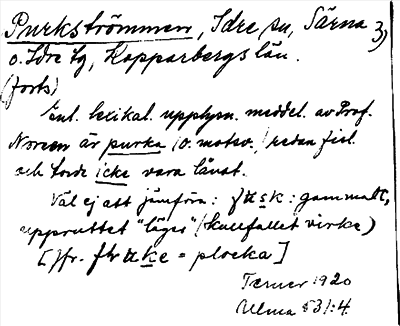 Purkströmmen, Idre sn, Särna 3)
o. Idre tg, Kopparbergs län.
(forts)
Enl. lexikal. upplysn. meddel. av Prof.
Noreen är purka (o. motsv.) redan
och torde icke vara lånat.
Väl ej att jämföra: : gammalt,
uppruttet "läger" (kullfallet virke)
[Jfr. = plocka]
Terner 1920
Ulma 531:4.